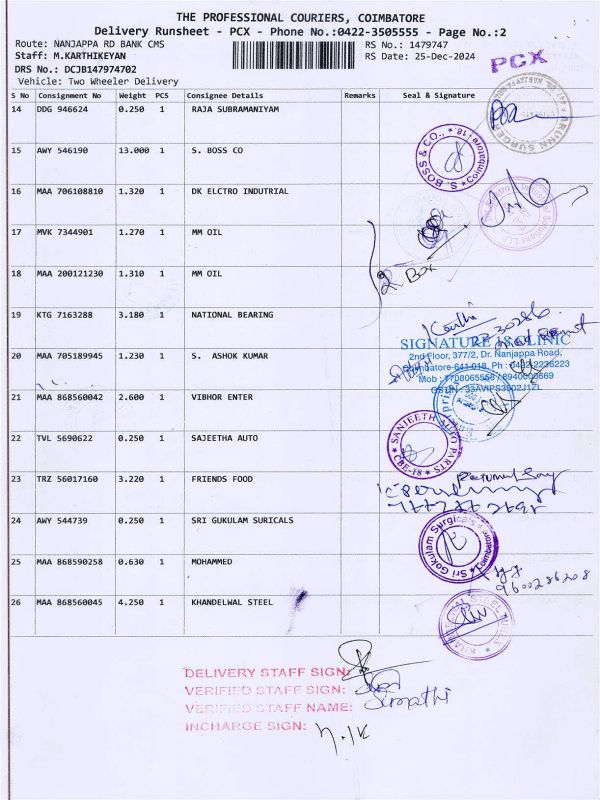 THE PROFESSIONAL COURIERS, COIMBATORE
Delivery Runsheet - PCX - Phone No.:0422-3505555 - Page No.:2
Route: NANJAPPA RD BANK CMS RS No.: 1479747
Staff: M.KARTHIKEYAN RS Date: 25-Dec-2024
DRS No.: DCJB147974702
Vehicle: Two Wheeler Delivery
PCX
S No Consignment No Weight PCS Consignee Details Remarks Seal & Signature
14 DDG 946624 0.250 1 RAJA SUBRAMANIYAM
15 AWY 546190 13.000 1 S. BOSS CO
S. BOSS & CO., Coimbatore
16 MAA 706108810 1.320 1 DK ELCTRO INDUTRIAL
17 MVK 7344901 1.270 1 MM OIL
18 MAA 200121230 1.310 1 MM OIL
2 Box
19 KTG 7163288 3.180 1 NATIONAL BEARING
SIGNATURE CLINIC
2nd Floor, 377/2, Dr. Nanjappa Road,
20 MAA 705189945 1.230 1 S. ASHOK KUMAR
Coimbatore-641 018. Ph : 0422-2236223
21 MAA 868560042 2.600 1 VIBHOR ENTER
22 TVL 5690622 0.250 1 SAJEETHA AUTO
SANJEETH AUTO PARTS
CBE-18
23 TRZ 56017160 3.220 1 FRIENDS FOOD
24 AWY 544739 0.250 1 SRI GUKULAM SURICALS
Sri Gokulam Surgicals Coimbatore
25 MAA 868590258 0.630 1 MOHAMMED
9600286208
26 MAA 868560045 4.250 1 KHANDELWAL STEEL
DELIVERY STAFF SIGN:
VERIFIED STAFF SIGN:
VERIFIED STAFF NAME: Sumathi
INCHARGE SIGN: